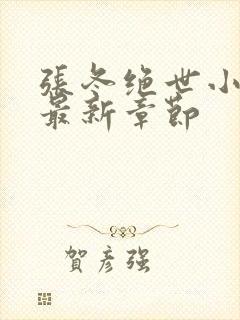 張冬绝世小
最新章節
賀彦强